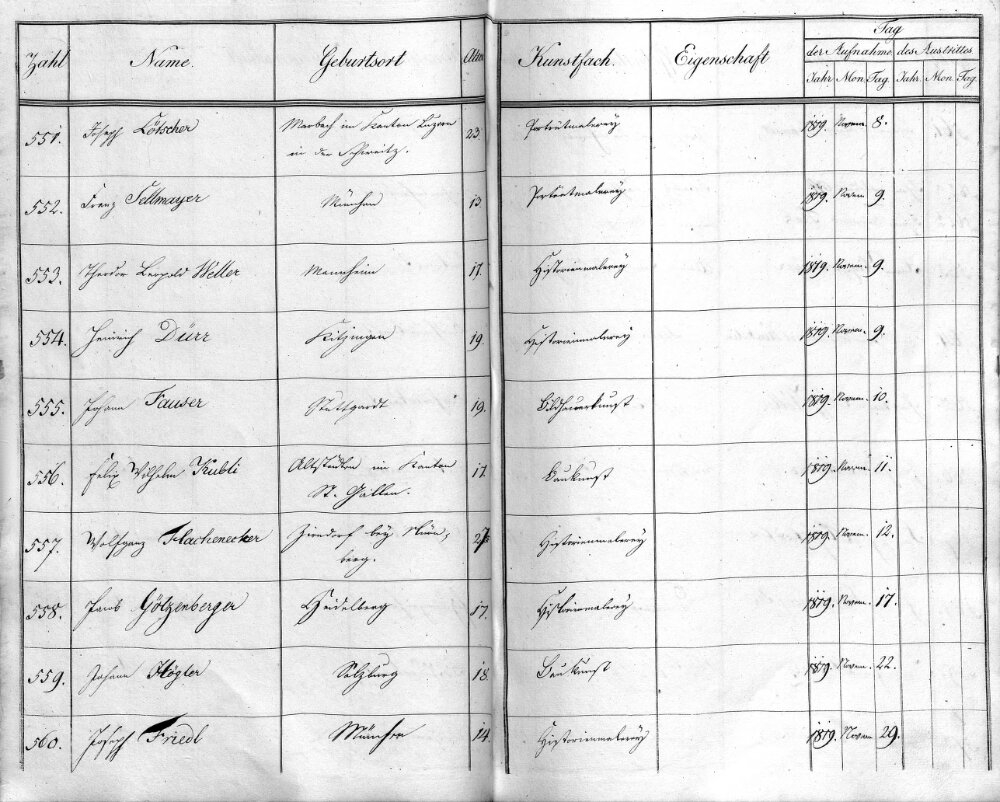 Zahl Name. Geburtsort Alter Kunstfach. Eigenschaft Tag
der Aufnahme des Austrittes
Jahr Mon. Tag. Jahr. Mon. Tag.
551. Joseph Lötscher Marbach im Kanton Luzern 23. Porträtmalerey 1819. Novem. 8.
in der Schweitz.
552. Franz Sellmayer München 13. Porträtmalerey 1819. Novem. 9.
553. Theodor Leopold Weller Mannheim 17. Historienmalerey 1819. Novem. 9.
554. Heinrich Dürr Kitzingen 19. Historienmalerey 1819. Novem. 9.
555. Johann Fauser Stuttgardt 19. Bildhauerkunst 1819. Novem. 10.
556. Felix Wilhelm Kubli Altstädten im Kanton 17. Baukunst 1819. Novem. 11.
St. Gallen.
557. Wolfgang Flachenecker Zirndorf bey Nürn- 27. Historienmalerey 1819. Novem. 12.
berg.
558. Jacob Götzenberger Heidelberg 17. Historienmalerey 1819. Novem. 17.
559. Johann Högler Salzburg 18. Baukunst 1819. Novem. 22.
560. Joseph Friedl München 14. Historienmalerey 1819. Novem. 29.